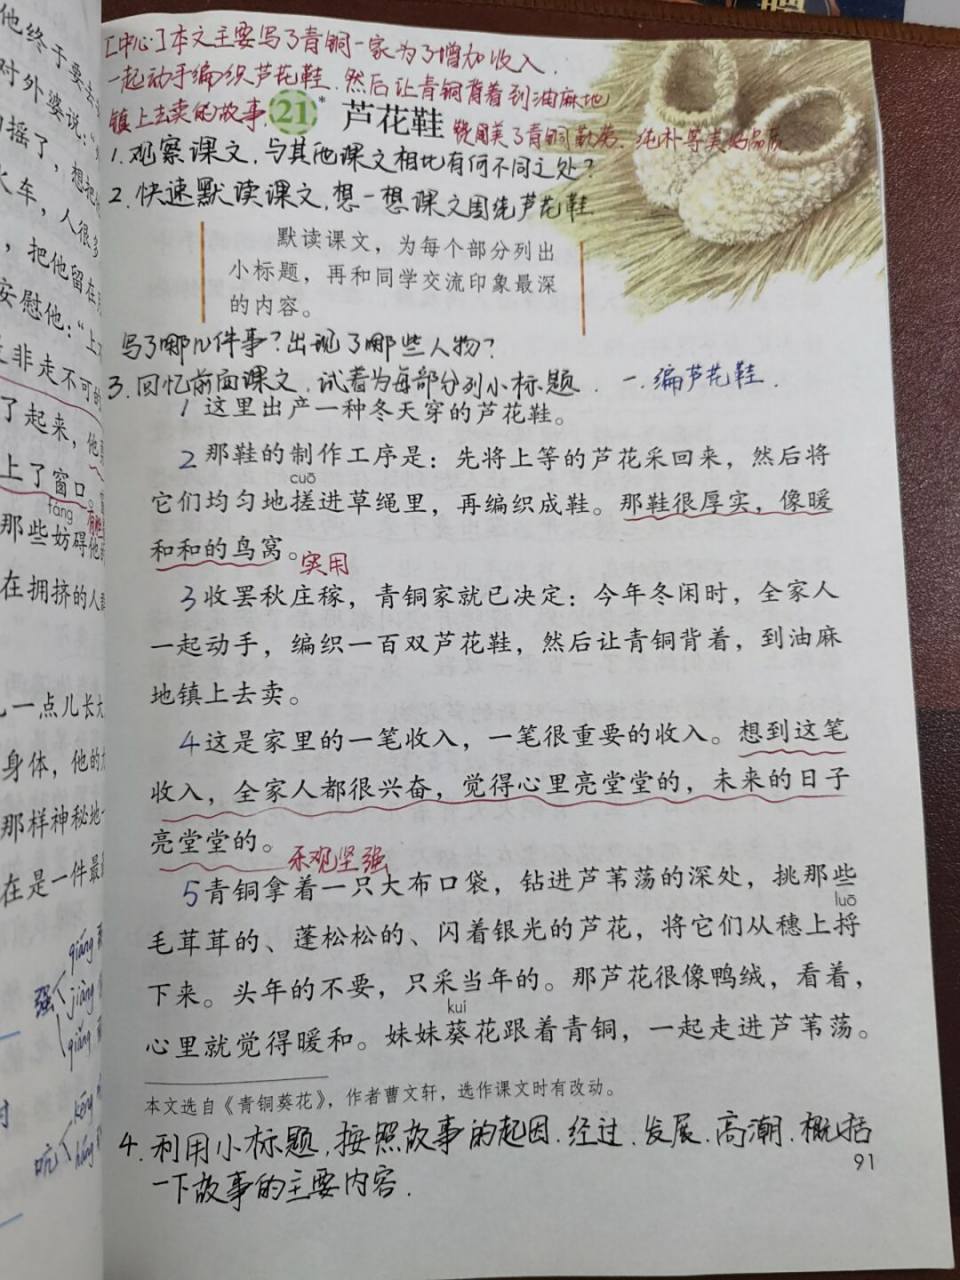 [中心]本文主要写了青铜一家为了增加收入、
一起动手编织芦花鞋、然后让青铜背着到油麻地
镇上去卖的故事.
21* 芦花鞋
饶周美了青铜勤劳、纯朴等美好品质
1.观察课文,与其他课文相比有何不同之处?
2.快速默读课文,想一想课文围绕芦花鞋
默读课文,为每个部分列出
小标题,再和同学交流印象最深
的内容。
写了哪几件事?出现了哪些人物?
3.回忆前面课文、试着为每部分列小标题.
一.编芦花鞋.
1 这里出产一种冬天穿的芦花鞋。
2 那鞋的制作工序是:先将上等的芦花采回来,然后将
cuō
它们均匀地搓进草绳里,再编织成鞋。那鞋很厚实,像暖
和和的鸟窝。实用
3 收罢秋庄稼,青铜家就已决定:今年冬闲时,全家人
一起动手,编织一百双芦花鞋,然后让青铜背着,到油麻
地镇上去卖。
4 这是家里的一笔收入,一笔很重要的收入。想到这笔
收入,全家人都很兴奋,觉得心里亮堂堂的,未来的日子
亮堂堂的。乐观坚强
5 青铜拿着一只大布口袋,钻进芦苇荡的深处,挑那些
luō
毛茸茸的、蓬松松的、闪着银光的芦花,将它们从穗上捋
下来。头年的不要,只采当年的。那芦花很像鸭绒,看着,
kuí
心里就觉得暖和。妹妹葵花跟着青铜,一起走进芦苇荡。
本文选自《青铜葵花》,作者曹文轩,选作课文时有改动。
4.利用小标题,按照故事的起因.经过.发展.高潮.概括
一下故事的主要内容.
91
他终于要去
对外婆说:“
摇了,想把
火车,人很多
,把他留在
安慰他:“上
非走不可的
了起来,他
上了窗口。
fáng
那些妨碍他
在拥挤的人
一点儿长大
身体,他的
那样神秘地
在是一件最
强
qiáng
jiàng
qiǎng
吭
kēng
háng